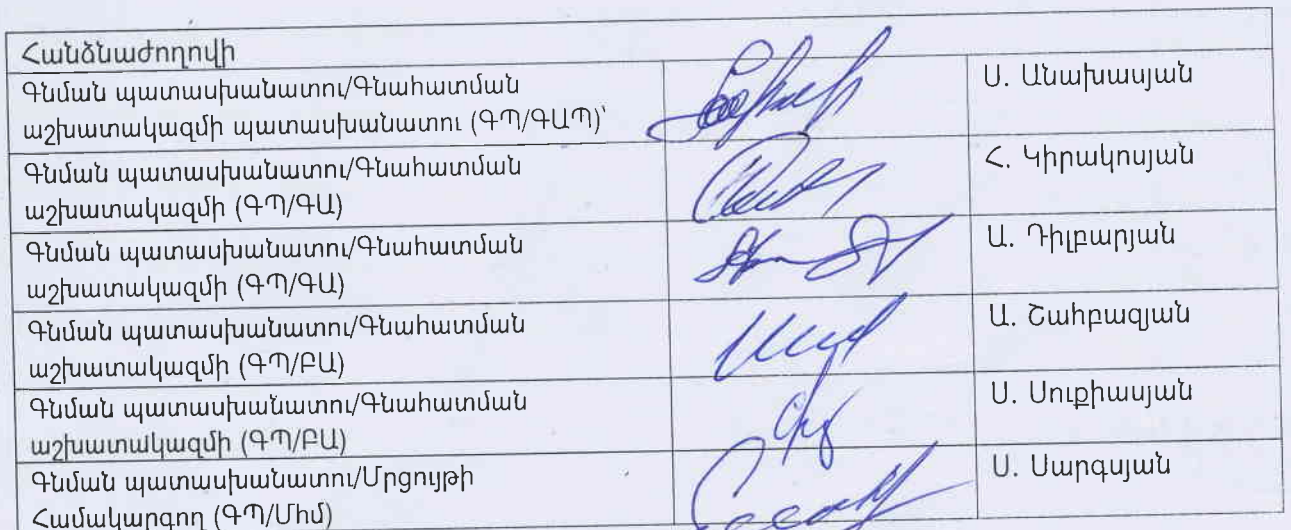 Հանձնաժողովի
Գնման պատասխանատու/Գնահատման
աշխատակազմի պատասխանատու (ԳՊ/ԳԱՊ)՝
Ս. Անախասյան
Գնման պատասխանատու/Գնահատման
աշխատակազմի (ԳՊ/ԳԱ)
Հ. Կիրակոսյան
Գնման պատասխանատու/Գնահատման
աշխատակազմի (ԳՊ/ԳԱ)
Ա. Դիլբարյան
Գնման պատասխանատու/Գնահատման
աշխատակազմի (ԳՊ/ԲԱ)
Ա. Շահբազյան
Գնման պատասխանատու/Գնահատման
աշխատակազմի (ԳՊ/ԲԱ)
Ս. Սուքիասյան
Գնման պատասխանատու/Մրցույթի
Համակարգող (ԳՊ/Մհմ)
Ս. Սարգսյան